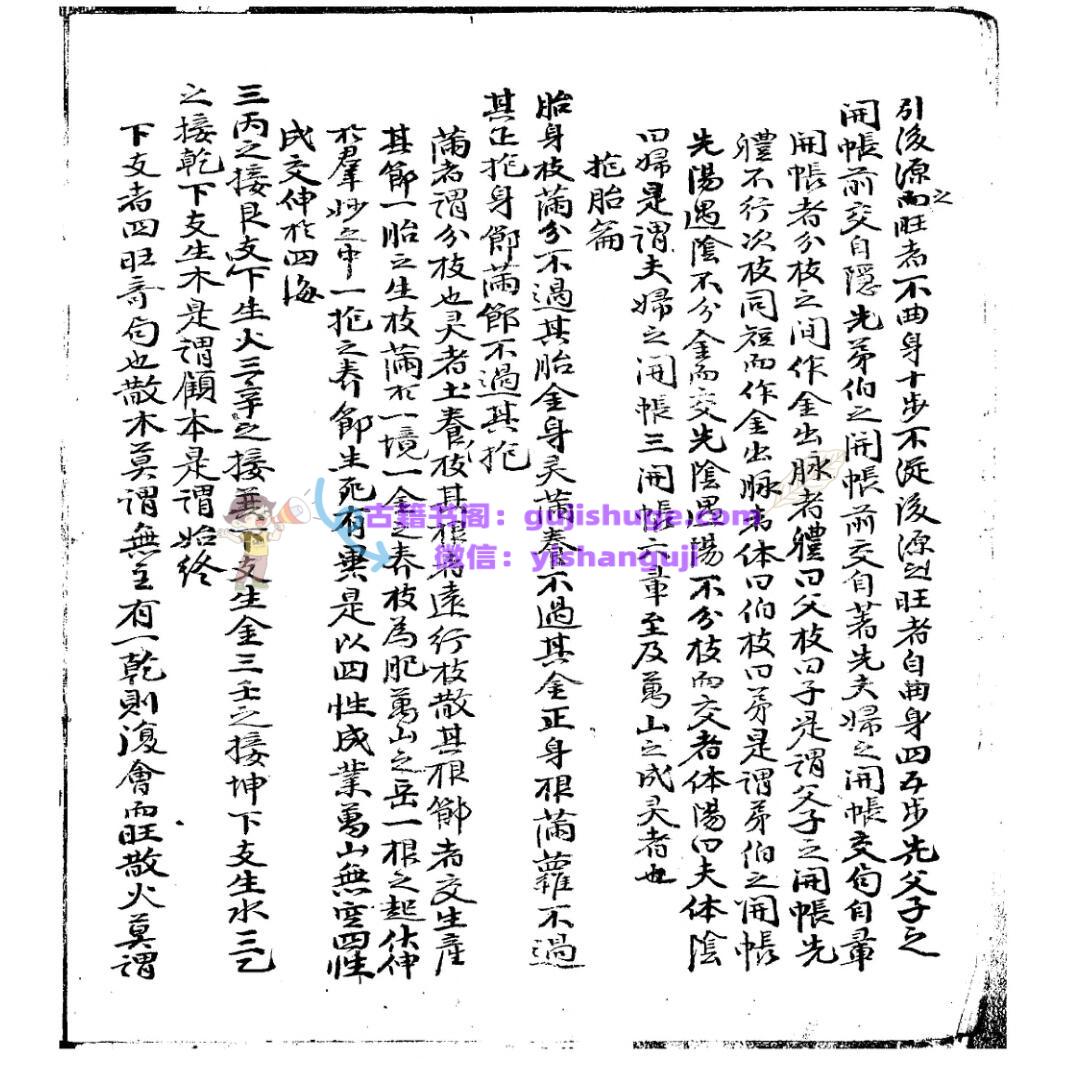 引後源之而旺者不曲身十步不從後源之旺者自曲身四五步先父子之
開帳前交自隱先弟伯之開帳前交自著先夫婦之開帳交旬自暈
開帳者分枝之间作金出脉者軆曰父枝曰子是謂父子之開帳先
軆不行次枝同短而作金出脉者体曰伯枝曰弟是謂弟伯之開帳
先陽遇陰不分金而交先陰遇陽不分枝而交者体陽曰夫体陰
曰婦是謂夫婦之開帳三開帳六暈至及萬山之成灵者也
抱胎篇
胎身枝蒲分不過其胎金身灵蒲養不過其金正身根蒲蘿不過
其正抱身節蒲節不過其抱
蒲者謂分枝也灵者土養枝其根將遠行枝散其根節者交生産
其節一胎之生枝蒲於一境一金之养枝為肥萬山之岳一根之起伏伸
於羣妙之中一抱之养節生死有異是以四性成業萬山無空四性
成交伸於四海
三丙之接艮支下生火三辛之接巽下支生金三壬之接坤下支生水三乙
之接乾下支生木是謂顧本是謂始終
下支者四旺奇旬也散木莫謂無主有一乾則復會而旺散火莫謂
古籍书阁：gujishuge.com
微信：yishanguji